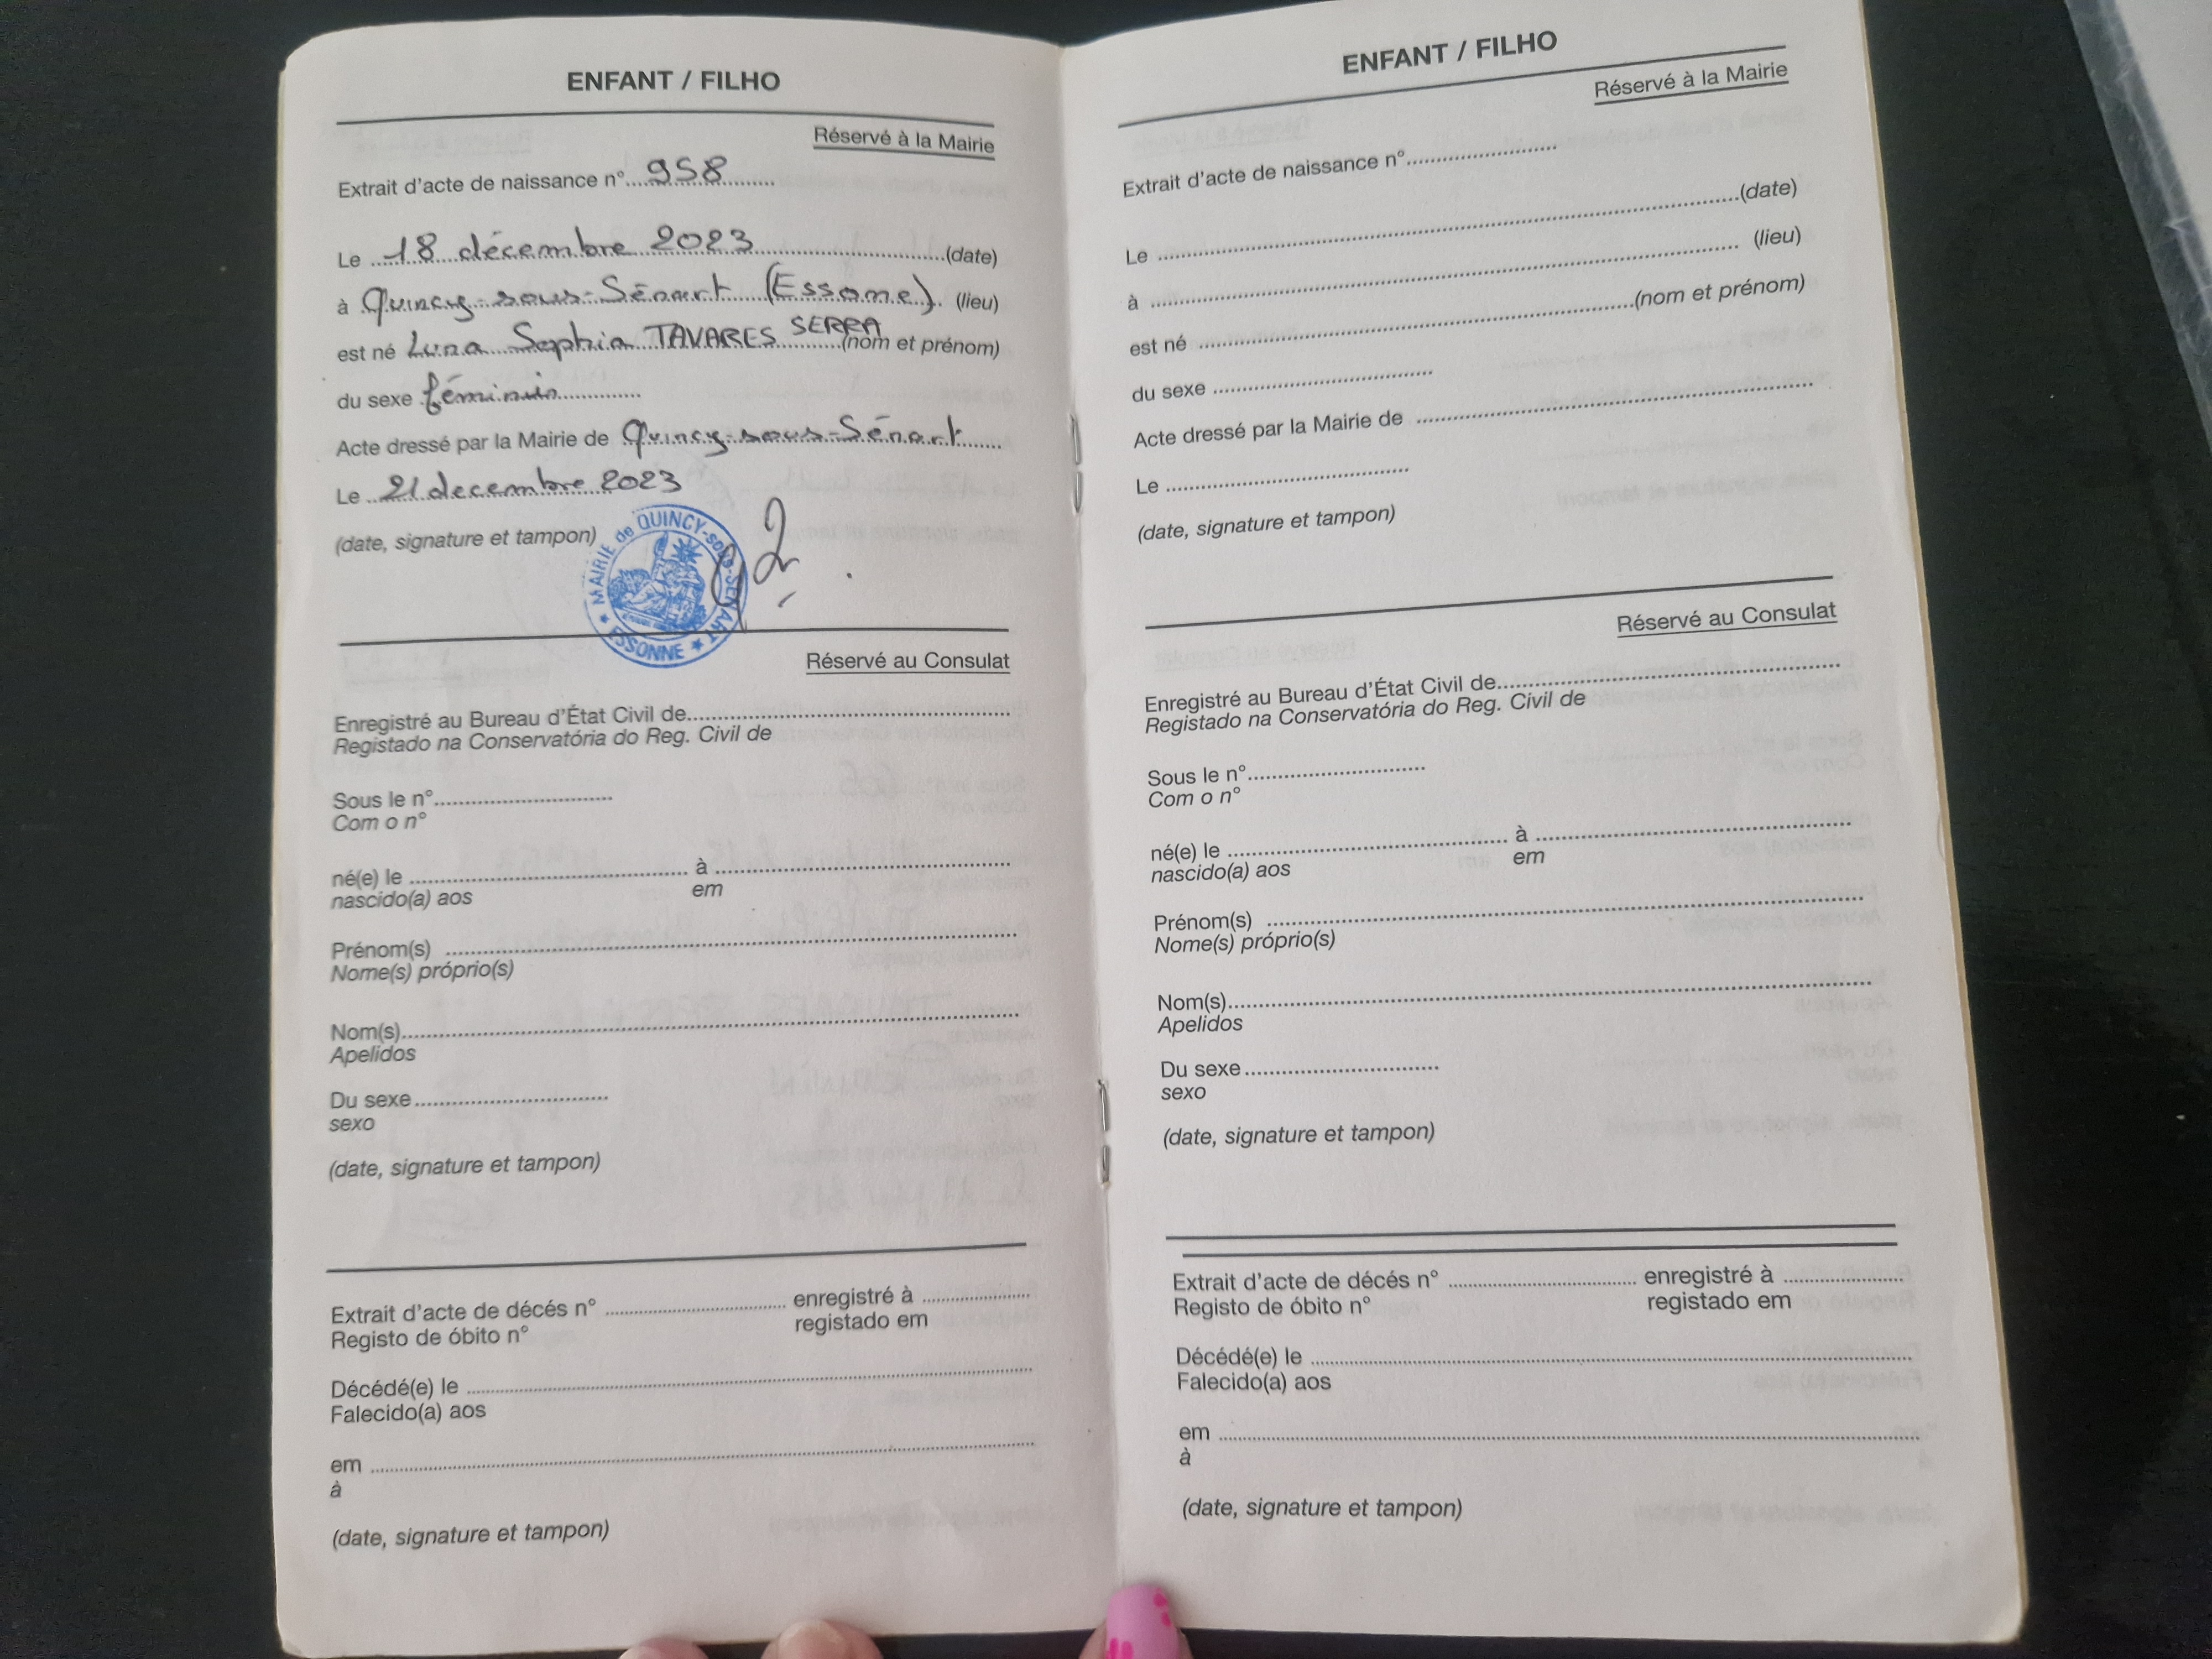 ENFANT / FILHO
Réservé à la Mairie
Extrait d'acte de naissance n° 958
Le 18 décembre 2023 (date)
à Quincy-sous-Sénart (Essonne). (lieu)
est né Luna Sophia TAVARES SERRA (nom et prénom)
du sexe féminin
Acte dressé par la Mairie de Quincy-sous-Sénart
Le 21 decembre 2023
(date, signature et tampon)
MAIRIE de QUINCY-sous-SÉNART
★ ESSONNE ★
Réservé au Consulat
Enregistré au Bureau d'État Civil de
Registado na Conservatória do Reg. Civil de
Sous le n°
Com o n°
né(e) le à
nascido(a) aos em
Prénom(s)
Nome(s) próprio(s)
Nom(s)
Apelidos
Du sexe
sexo
(date, signature et tampon)
Extrait d'acte de décés n° enregistré à
Registo de óbito n° registado em
Décédé(e) le
Falecido(a) aos
em
à
(date, signature et tampon)
ENFANT / FILHO
Réservé à la Mairie
Extrait d'acte de naissance n°
Le (date)
à (lieu)
est né (nom et prénom)
du sexe
Acte dressé par la Mairie de
Le
(date, signature et tampon)
Réservé au Consulat
Enregistré au Bureau d'État Civil de
Registado na Conservatória do Reg. Civil de
Sous le n°
Com o n°
né(e) le à
nascido(a) aos em
Prénom(s)
Nome(s) próprio(s)
Nom(s)
Apelidos
Du sexe
sexo
(date, signature et tampon)
Extrait d'acte de décés n° enregistré à
Registo de óbito n° registado em
Décédé(e) le
Falecido(a) aos
em
à
(date, signature et tampon)